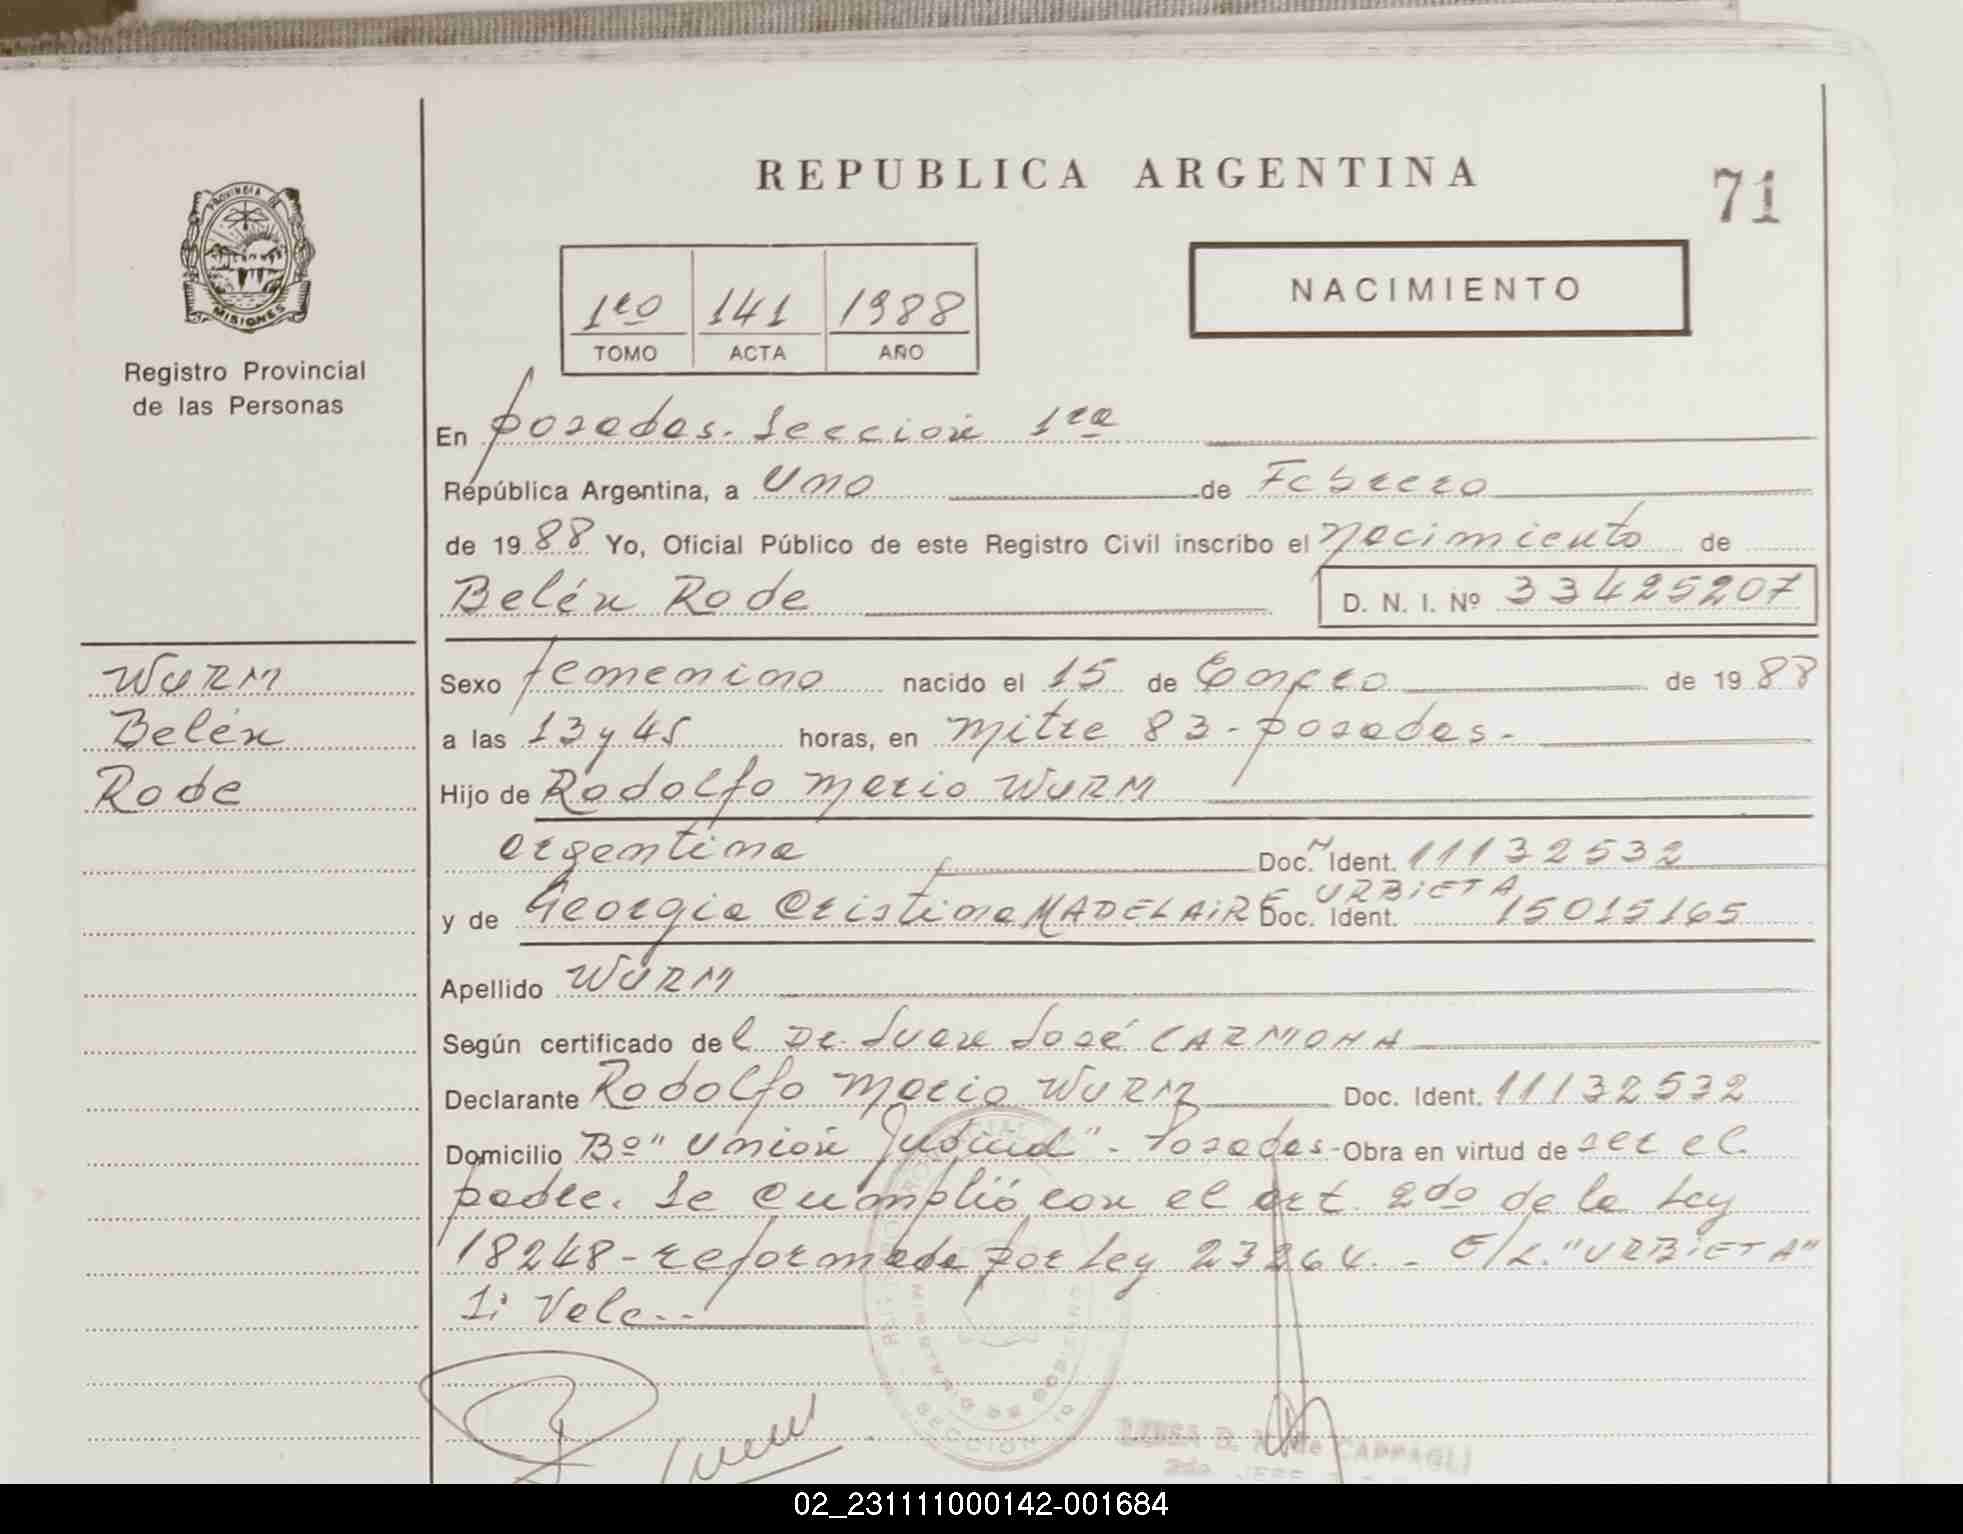 REPUBLICA ARGENTINA
71
PROVINCIA DE
MISIONES
Registro Provincial
de las Personas
1ro 141 1988
TOMO ACTA AÑO
NACIMIENTO
En Posadas. Sección 1ra
República Argentina, a Uno de Febrero
de 1988 Yo, Oficial Público de este Registro Civil inscribo el nacimiento de
Belén Rode D. N. I. Nº 33425207
WURM
Belén
Rode
Sexo femenino nacido el 15 de Enero de 1988
a las 13 y 45 horas, en Mitre 83 - Posadas.-
Hijo de Rodolfo Mario WURM
argentina Doc. Ident. 11132532
y de Georgia Cristina MADELAIRE URBIETA Doc. Ident. 15015165
Apellido WURM
Según certificado del Dr. Juan José CARMONA
Declarante Rodolfo Mario WURM Doc. Ident. 11132532
Domicilio Bº "Unión Judicial" - Posadas - Obra en virtud de ser el
padre. Se cumplió con el art. 2do de la Ley
18248 - reformada por Ley 23264. - E/L. "URBIETA"
Si Vale.--
MINISTERIO DE GOBIERNO
SECCION 1a
D. N. de CAPPAGLI
2da. JEFE
02_231111000142-001684